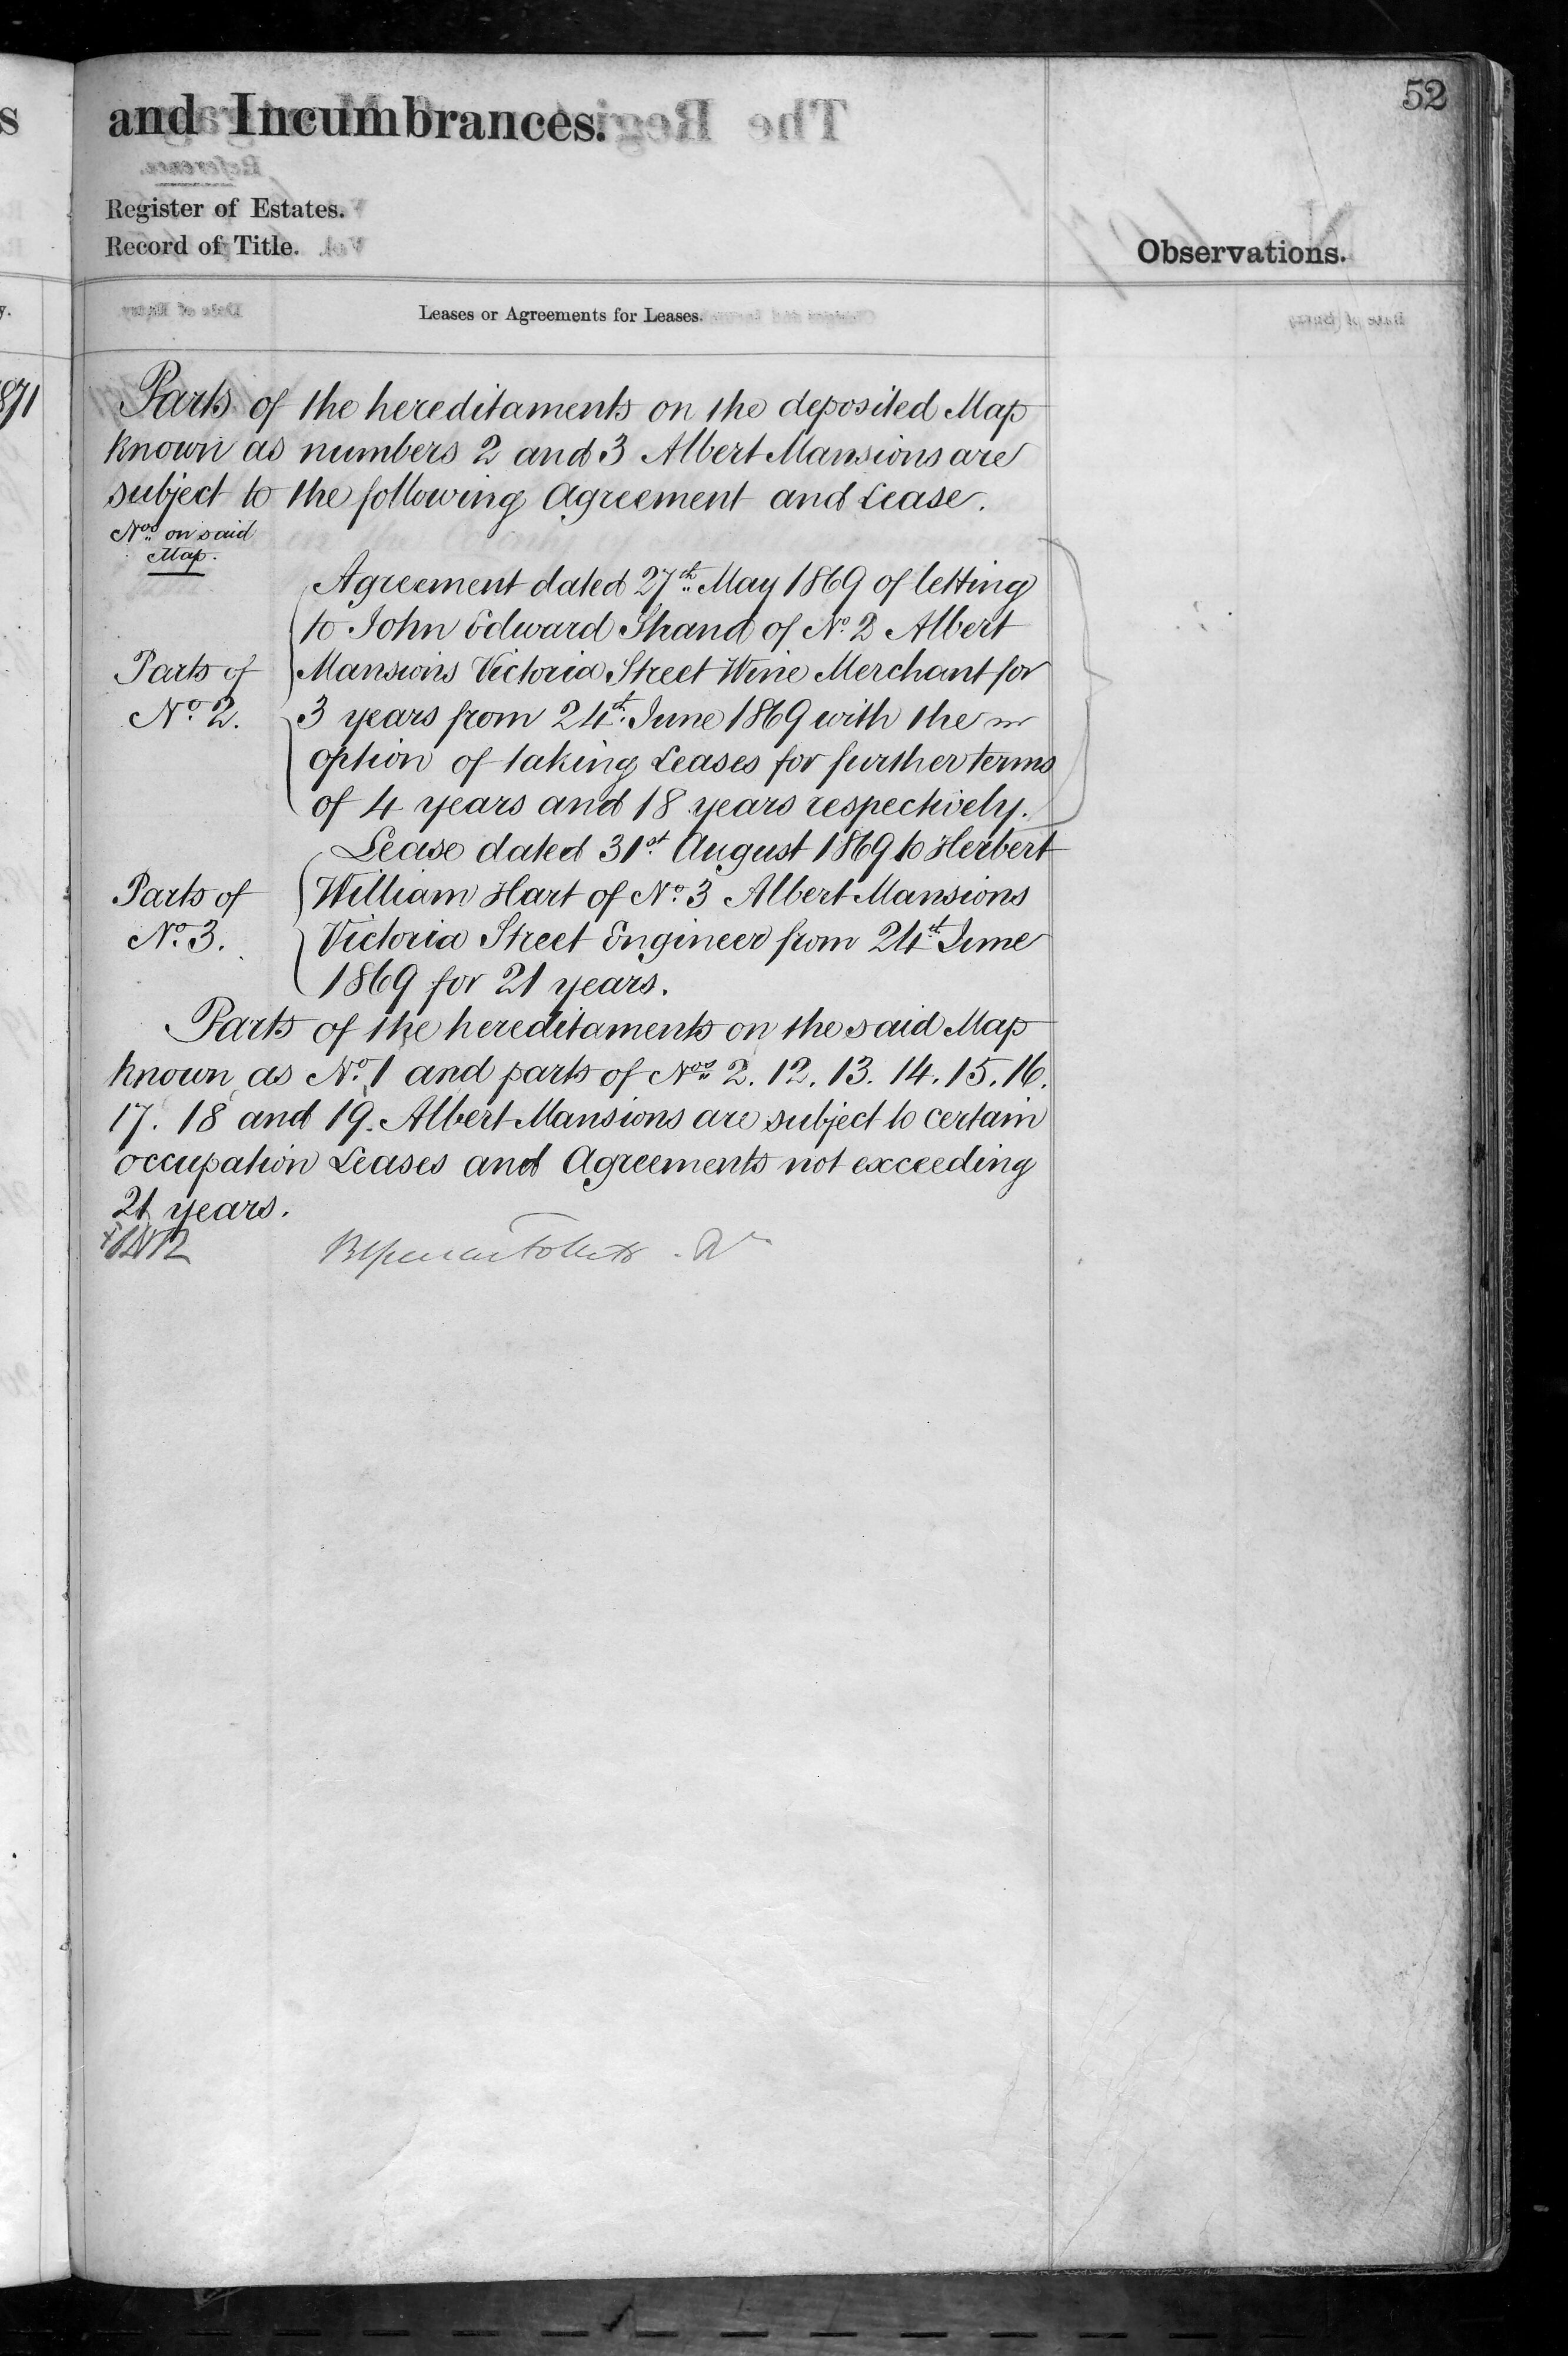 52
and Incumbrances.
Register of Estates.
Record of Title.
Observations.
Leases or Agreements for Leases.
1871
Parts of the hereditaments on the deposited Map
known as numbers 2 and 3 Albert Mansions are
subject to the following Agreement and Lease.
Nos. on said
Map.
Agreement dated 27th May 1869 of letting
to John Edward Shand of No. 2 Albert
Parts of
Mansions Victoria Street Wine Merchant for
No. 2.
3 years from 24th June 1869 with the
option of taking Leases for further terms
of 4 years and 18 years respectively.
Lease dated 31st August 1869 to Herbert
Parts of
William Hart of No. 3 Albert Mansions
No. 3.
Victoria Street Engineer from 24th June
1869 for 21 years.
Parts of the hereditaments on the said Map
known as No. 1 and parts of Nos. 2. 12. 13. 14. 15. 16.
17. 18 and 19. Albert Mansions are subject to certain
occupation Leases and Agreements not exceeding
21 years.